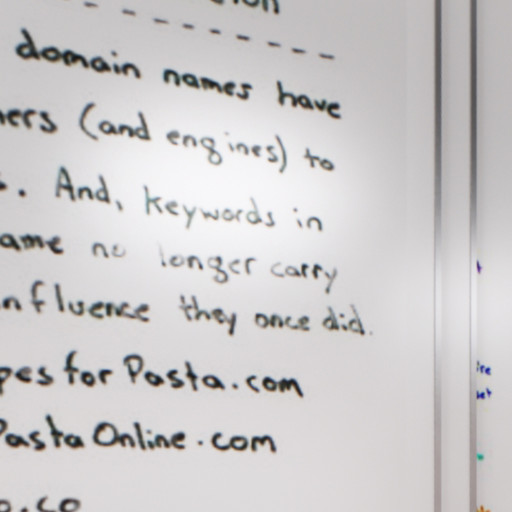 domain names have
(and engines) to
. And, keywords in
no longer carry
they once did.
for Pasta.com
PastaOnline.com
.co